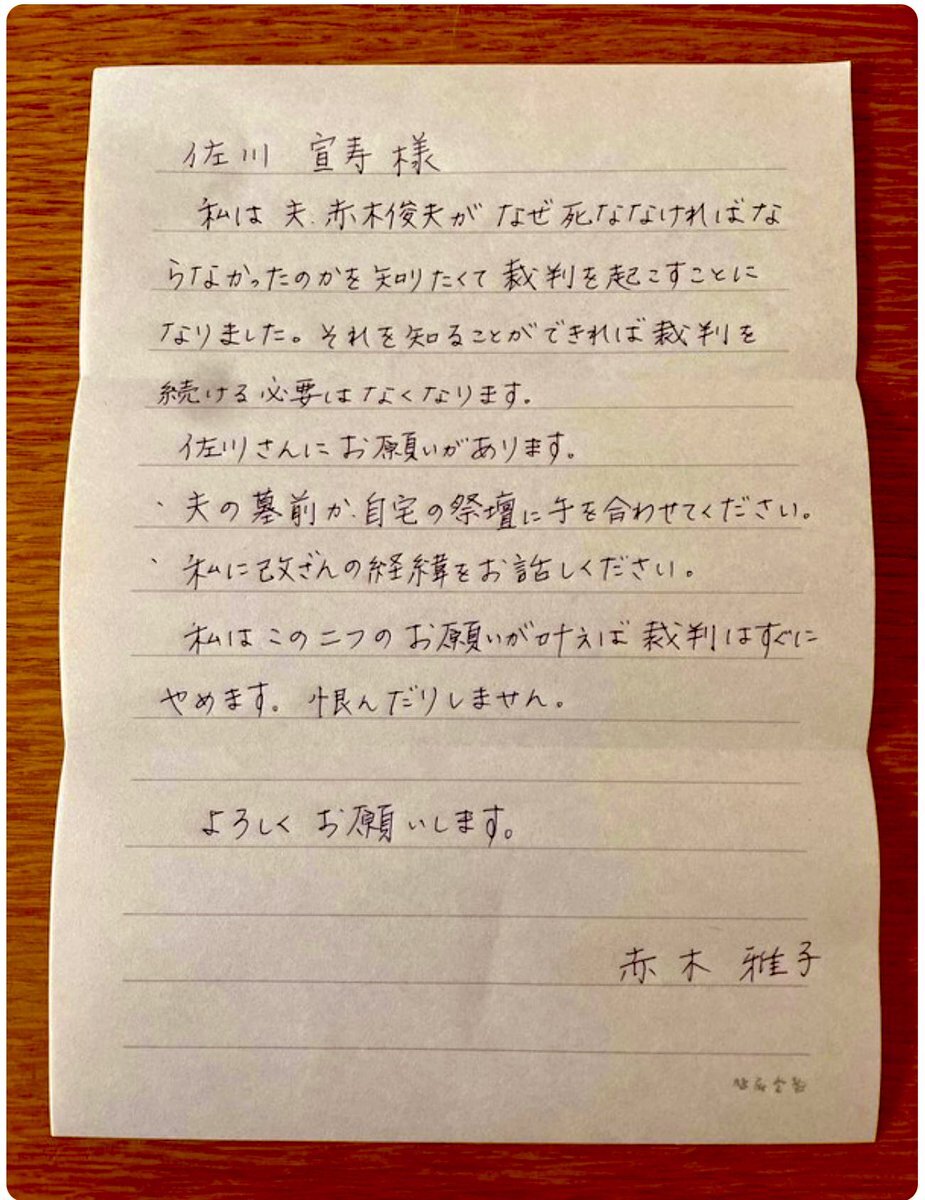 佐川 宣寿 様
私は 夫、赤木俊夫が なぜ 死ななければな
らなかったのかを 知りたくて 裁判を起こすことに
なりました。それを知ることができれば 裁判を
続ける必要はなくなります。
佐川さんにお願いがあります。
・夫の墓前か、自宅の祭壇に手を合わせてください。
・私に改ざんの経緯をお話しください。
私はこの二つのお願いが叶えば 裁判はすぐに
やめます。恨んだりしません。
よろしく お願いします。
赤木 雅子